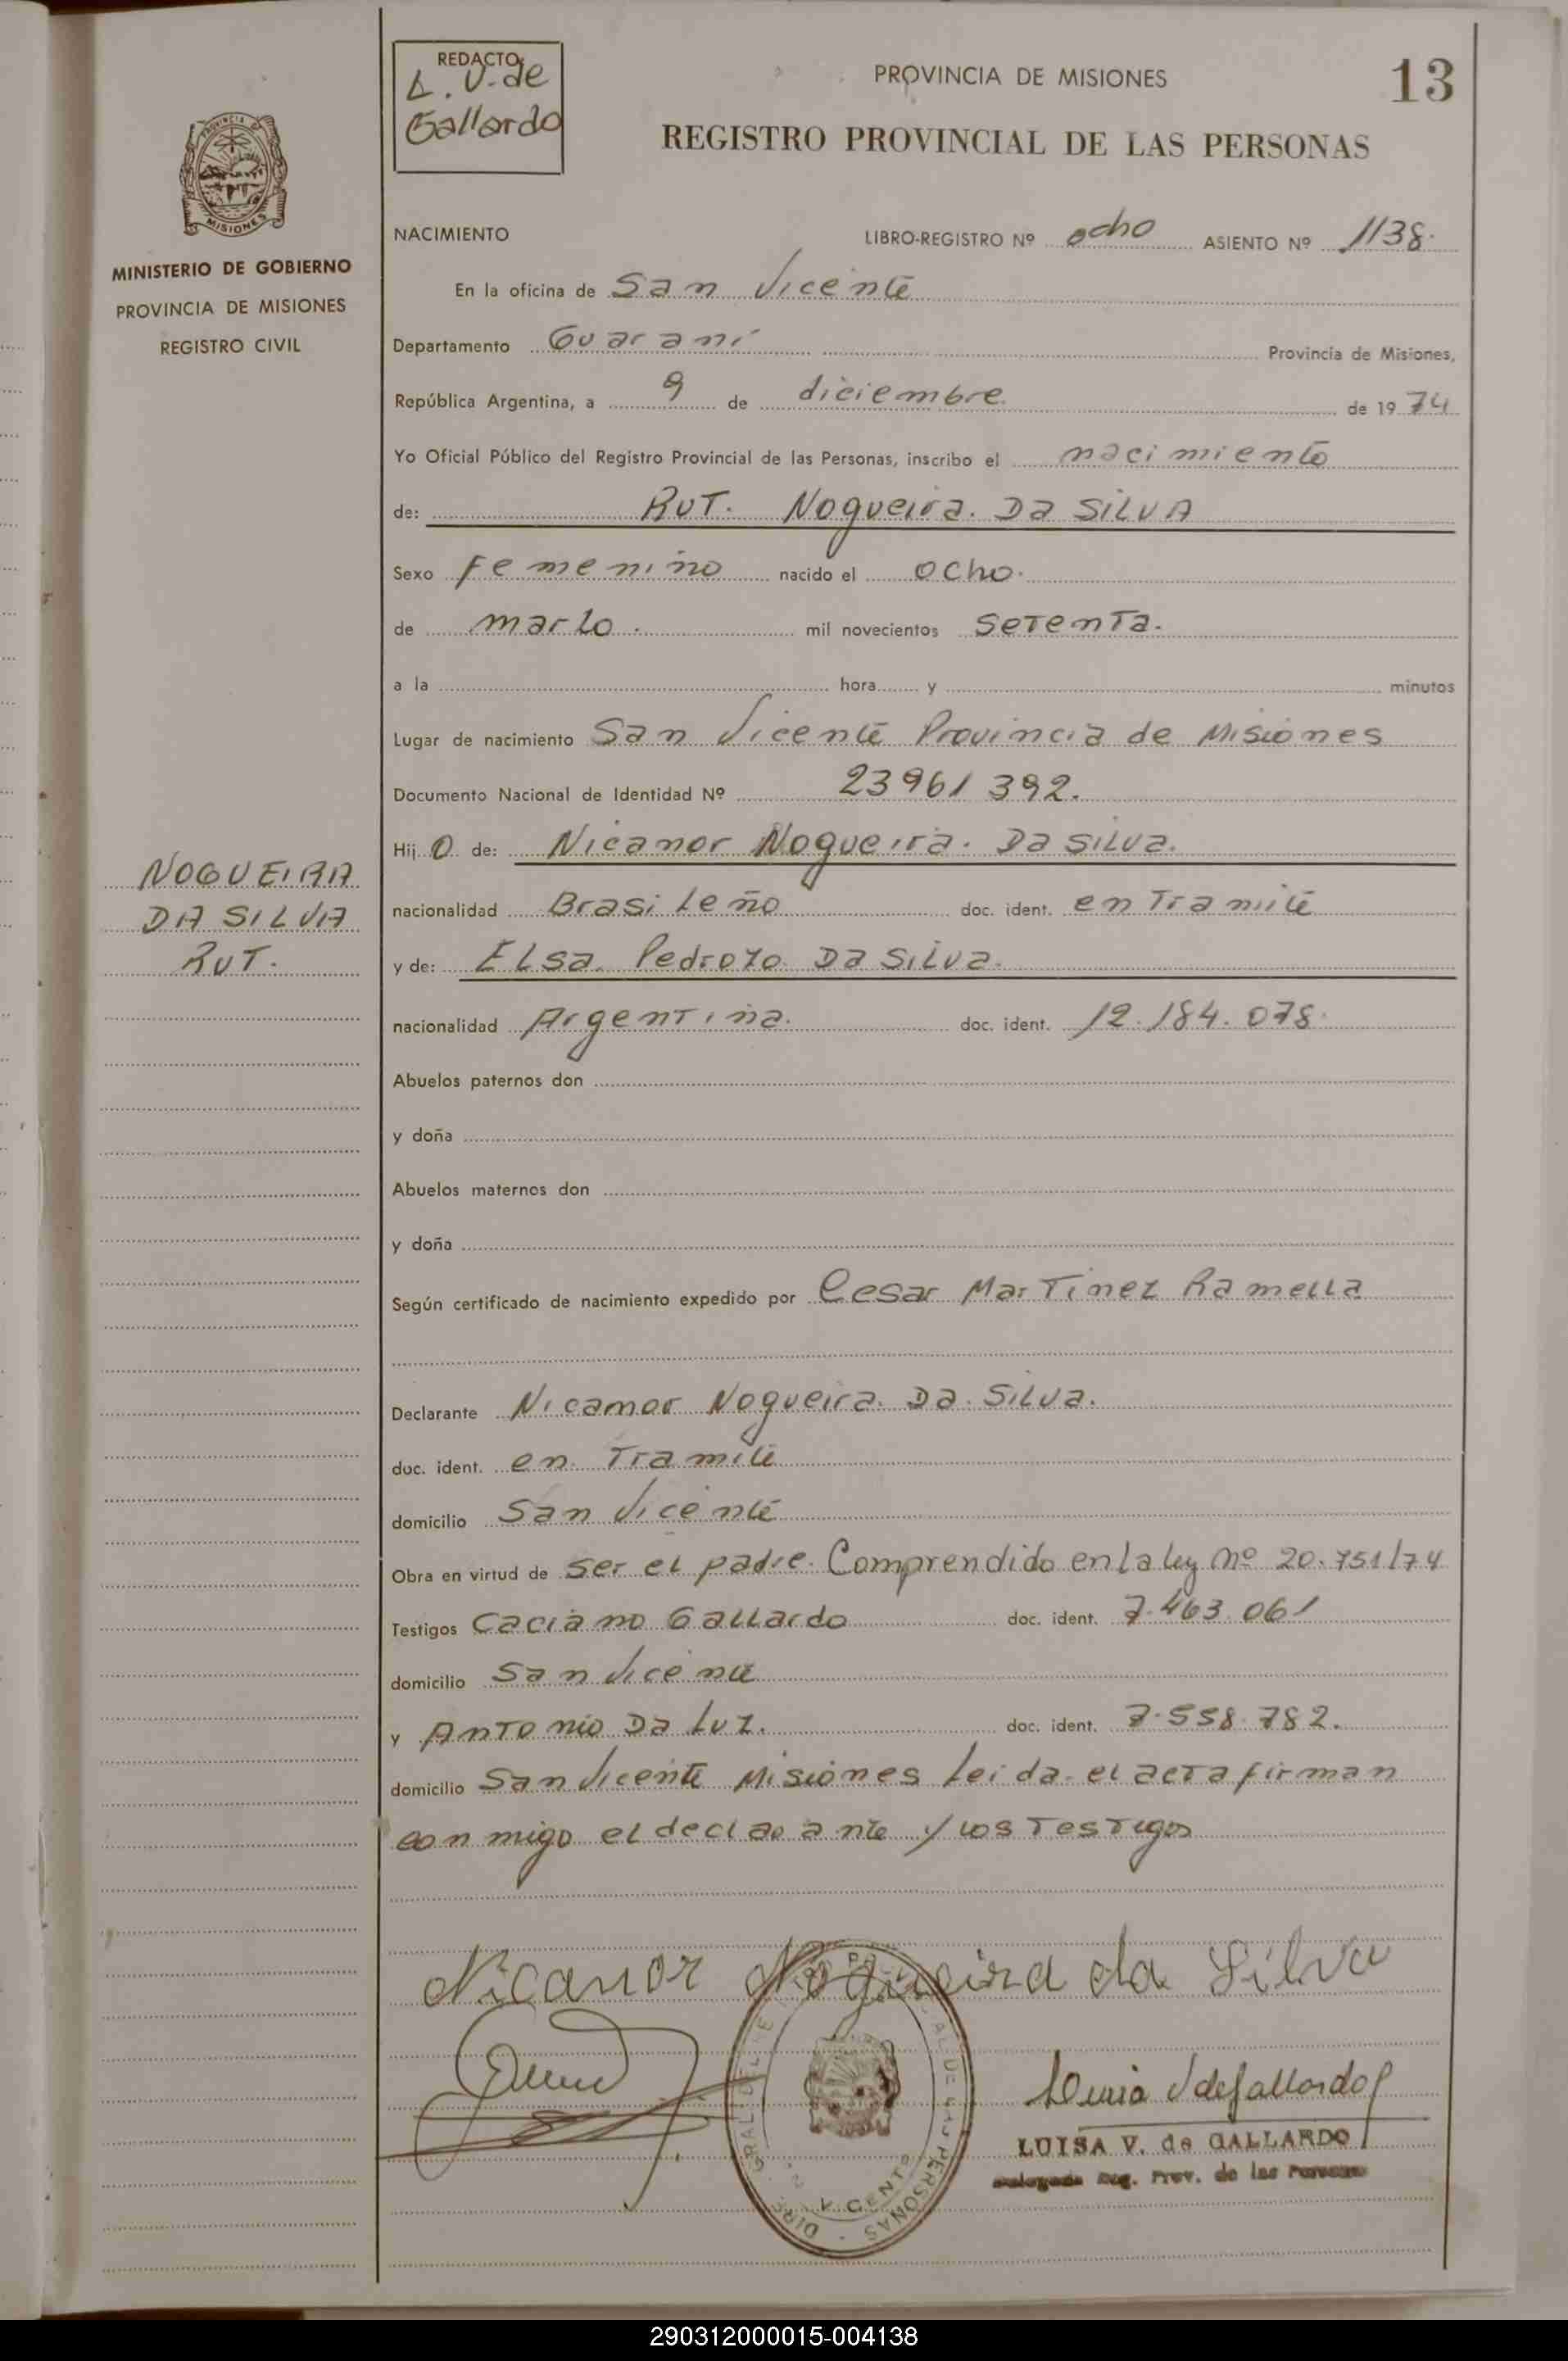 REDACTO
L. V. de
Gallardo
PROVINCIA DE MISIONES
13
REGISTRO PROVINCIAL DE LAS PERSONAS
PROVINCIA DE
MISIONES
MINISTERIO DE GOBIERNO
PROVINCIA DE MISIONES
REGISTRO CIVIL
NACIMIENTO LIBRO-REGISTRO Nº ocho ASIENTO Nº 1138.
En la oficina de San Vicente
Departamento Guaraní Provincia de Misiones,
República Argentina, a 9 de diciembre de 1974
Yo Oficial Público del Registro Provincial de las Personas, inscribo el nacimiento
de: RUT. Nogueira. Da SILVA
Sexo femenino nacido el ocho.
de marzo. mil novecientos setenta.
a la hora y minutos
Lugar de nacimiento San Vicente Provincia de Misiones
Documento Nacional de Identidad Nº 23961392.
Hij O de: Nicanor Nogueira. Da Silva.
NOGUEIRA
DA SILVA
RUT.
nacionalidad Brasileño doc. ident. en Tramite
y de: Elsa. Pedrozo Da Silva.
nacionalidad Argentina. doc. ident. 12.184.078.
Abuelos paternos don
y doña
Abuelos maternos don
y doña
Según certificado de nacimiento expedido por Cesar Martinez Ramella
Declarante Nicamor Nogueira. Da. Silva.
doc. ident. en. Tramite
domicilio San Vicente
Obra en virtud de ser el padre. Comprendido en la ley nº 20.751/74
Testigos Caciano Gallardo doc. ident. 7.463.061
domicilio San Vicente
y Antonio Da Luz. doc. ident. 7.558.782.
domicilio San Vicente Misiones Leida el acta firman
conmigo el declarante y los Testigos
Nicanor Nogueira da Silva
Luisa V de Gallardo
LUISA V. de GALLARDO
Reg. Prov. de las Personas
290312000015-004138